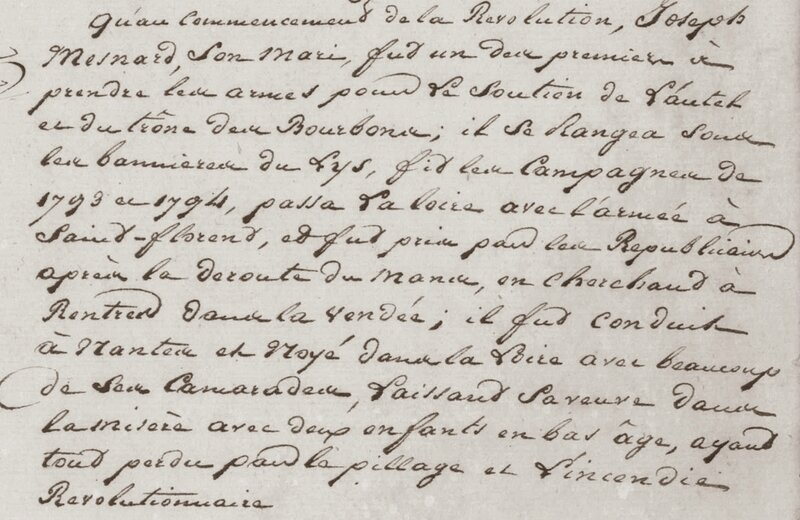 Qu'au commencement de la Revolution, Joseph
Mesnard, Son Mari, fut un des premiers à
prendre les armes pour Le Soutien de L'autel
et du trône des Bourbons ; il se Rangea sous
les bannieres du Lys, fit les Campagnes de
1793 et 1794, passa La loire avec l'armée à
Saint-florend, et fut pris par les Republicains
après la deroute du Mans, en cherchand à
Rentrer dans la Vendée ; il fut conduit
à Nantes et Noyé dans la Loire avec beaucoup
de Ses Camarades, Laissant Sa veuve dans
la misère avec deux enfants en bas âge, ayant
tout perdu par le pillage et L'incendie
Revolutionnaire